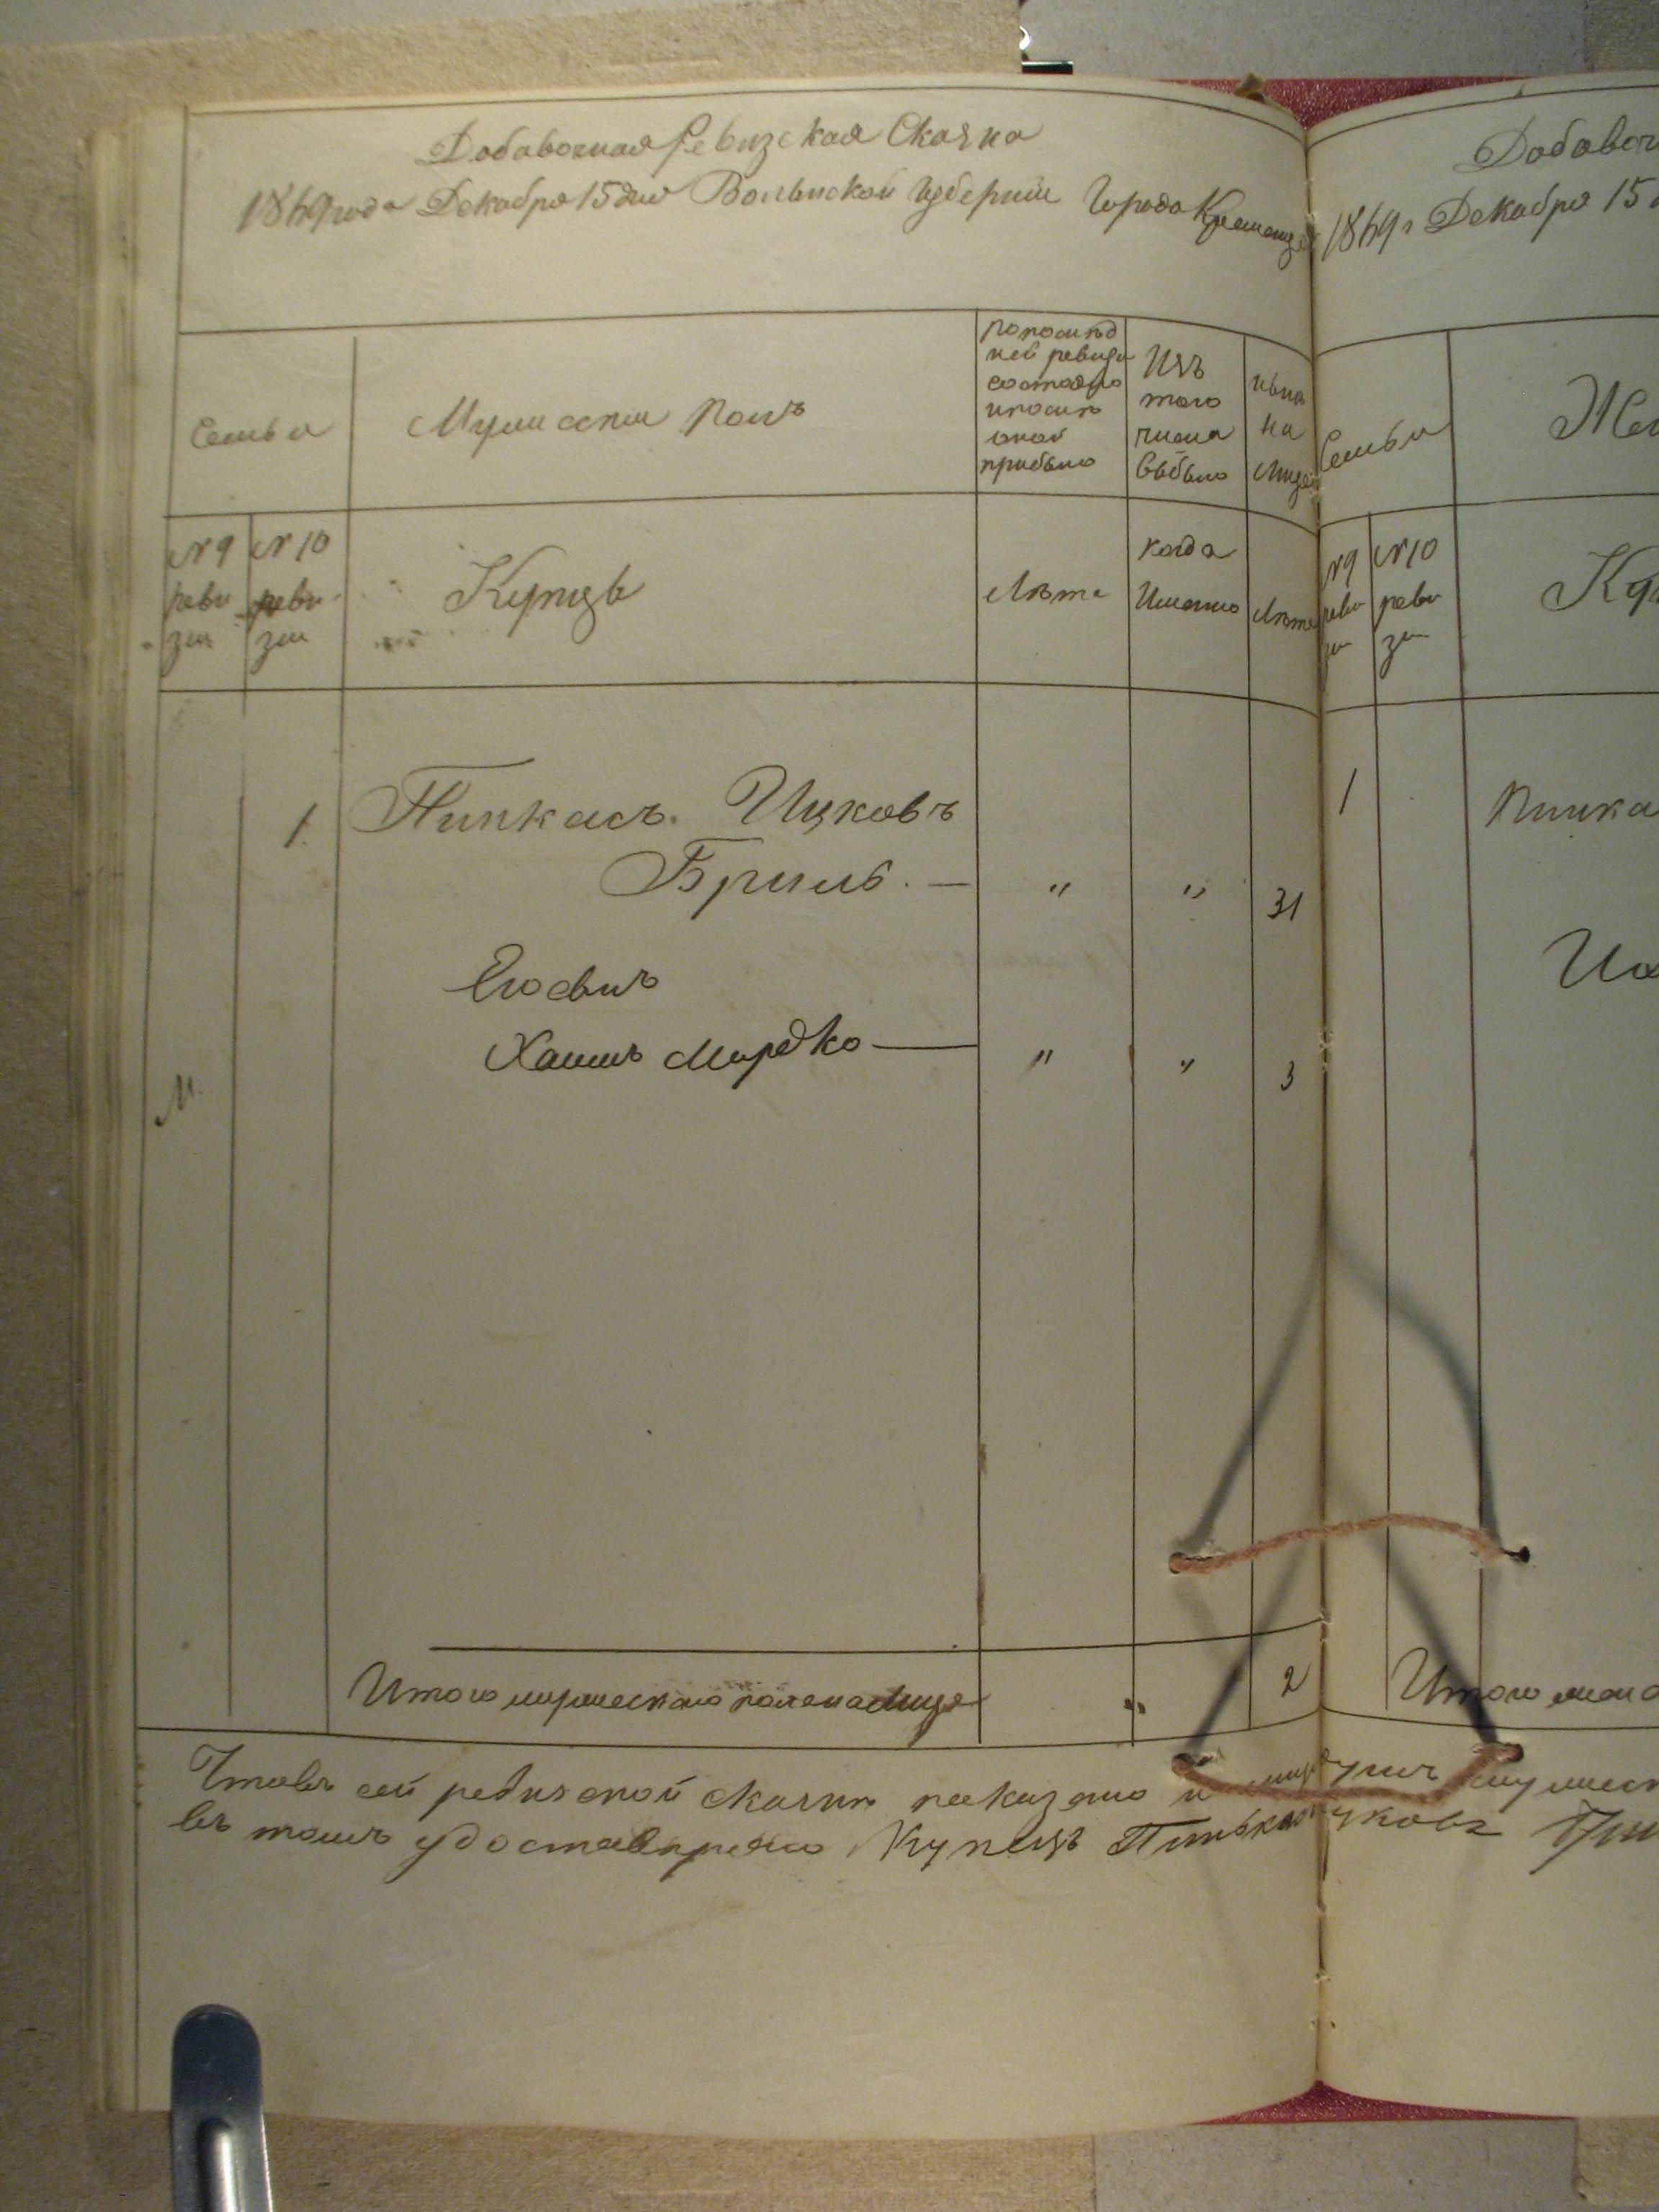 Добавочная Ревизская Сказка
1869 года Декабря 15 дня Волынской Губернии Города Кременца
Семьи
Мужескій Полъ
По послѣд
ней ревизи
состояло
и послѣ
оной
прибыло
Изъ
того
числа
выбыло
нына
на
Лицо
№ 9
реви
зіи
№ 10
реви
зіи
Купцы
Лѣта
когда
Именно
Лѣта
1 Пинкасъ Ицковъ
Бриль. — " " 31
Его сынъ
Хаимъ Мордко — " " 3
М.
Итого мужескаго пола на Лицо " 2
Что въ сей ревизской сказки показано и
въ томъ удоставѣряю Купецъ Пинькасъ Ицковъ
Добавоч
1869 г Декабря 15
Семьи
Же
№ 9
реви
зіи
№ 10
реви
зіи
Куп
1 Пинка
Итого женс